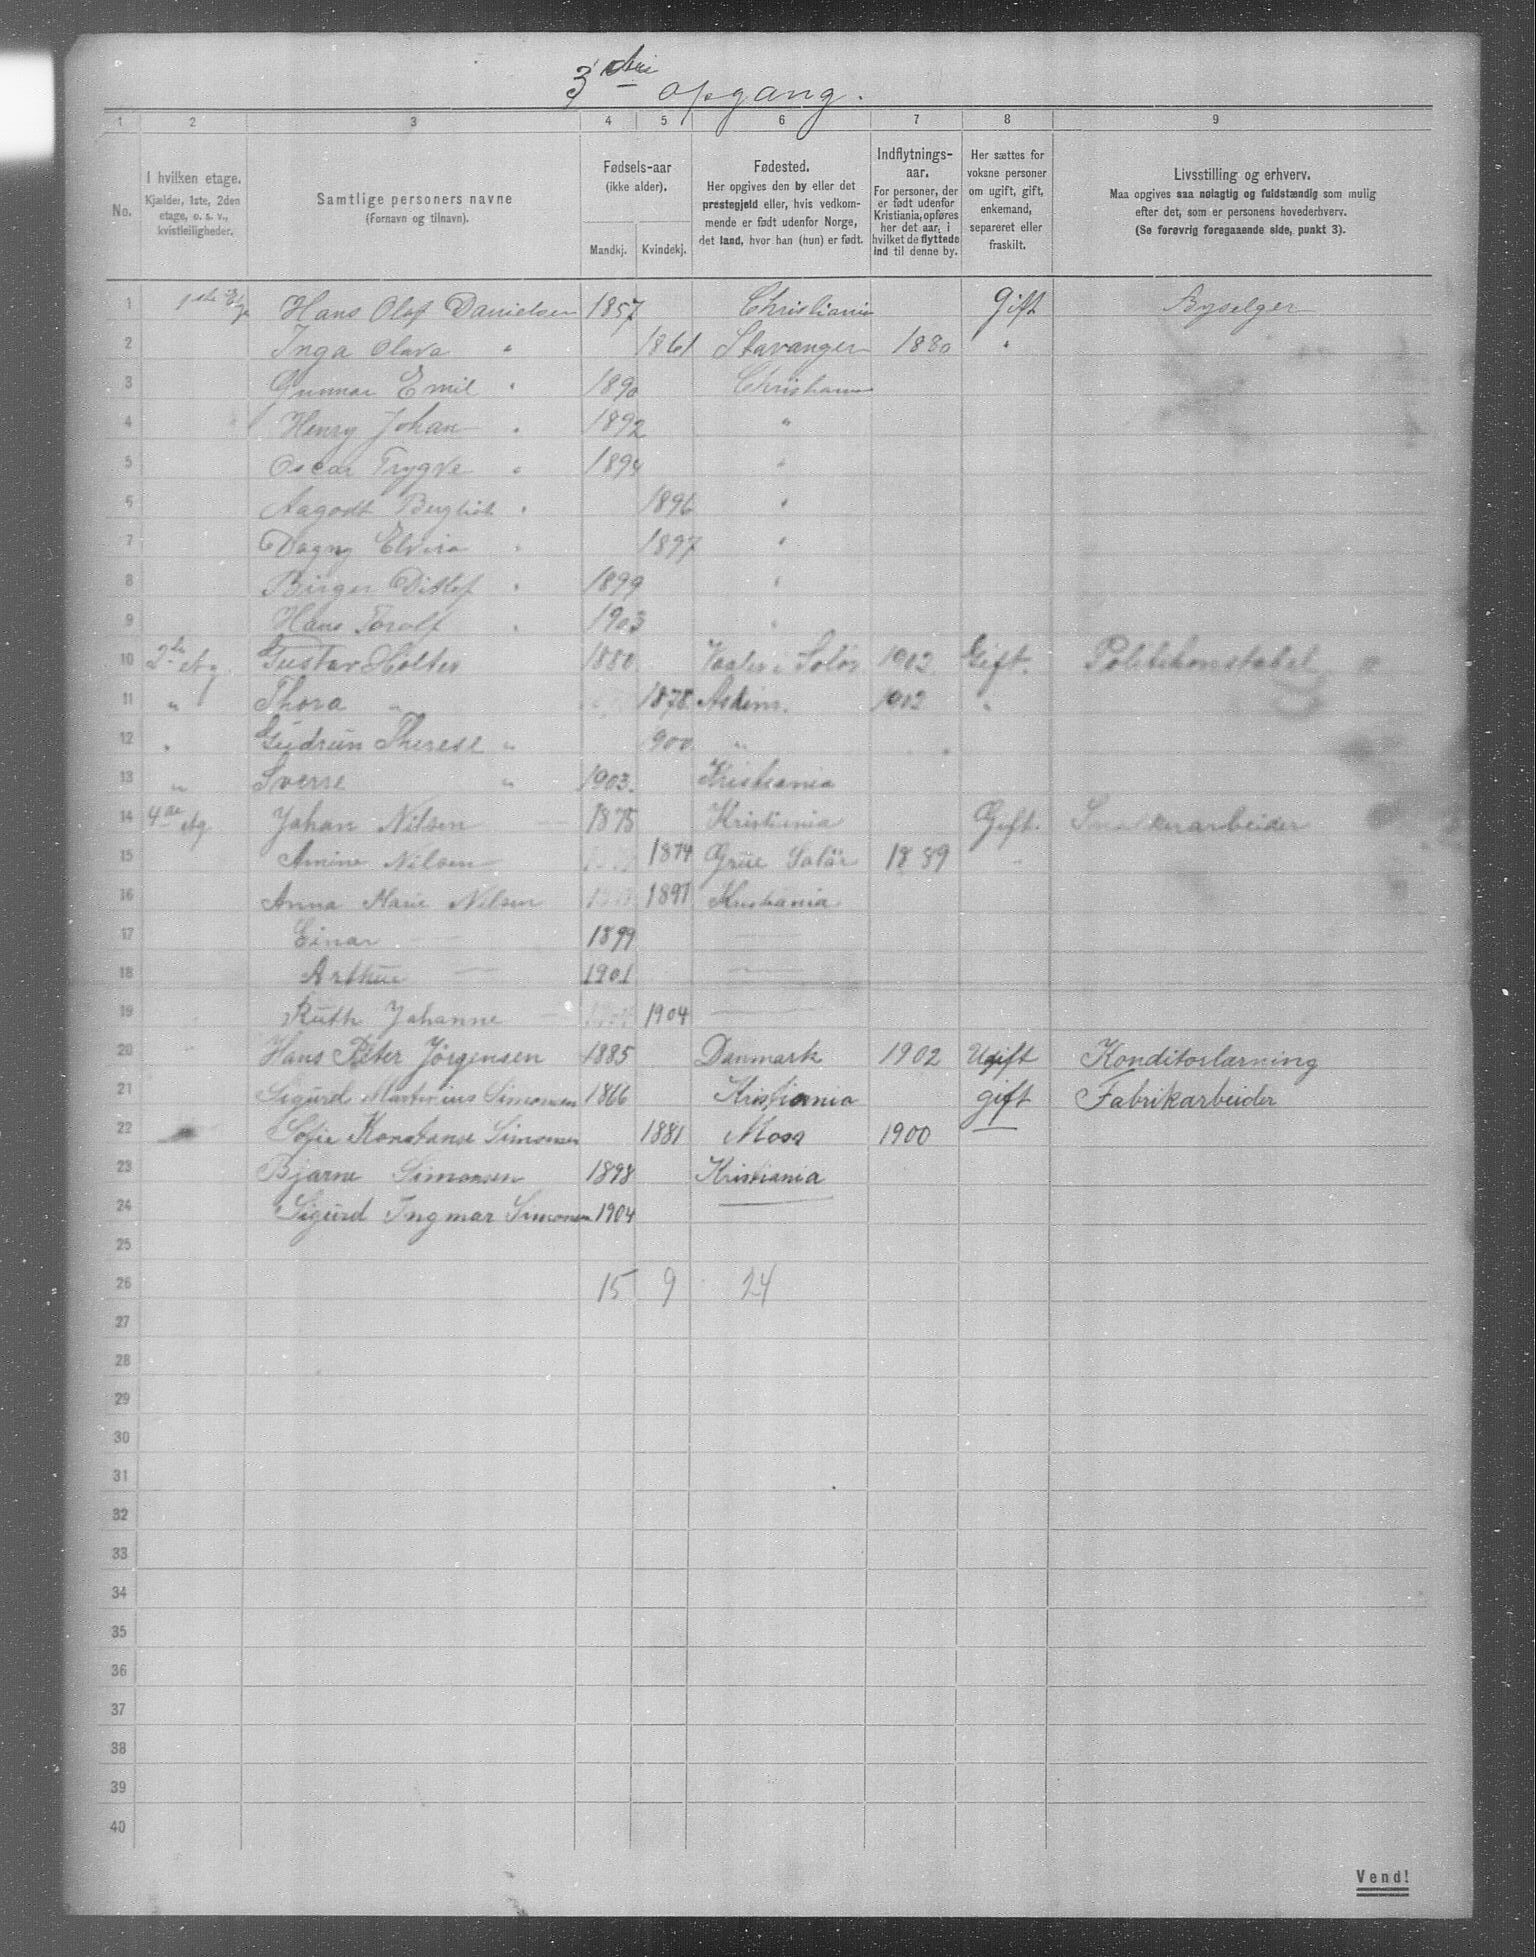 3die opgang.
1 2 3 4 5 6 7 8 9
No.
I hvilken etage.
Kjælder, 1ste, 2den
etage, o. s. v.,
kvistleiligheder.
Samtlige personers navne
(Fornavn og tilnavn).
Fødsels-aar
(ikke alder).
Mandkj. Kvindekj.
Fødested.
Her opgives den by eller det
prestegjeld eller, hvis vedkom-
mende er født udenfor Norge,
det land, hvor han (hun) er født.
Indflytnings-
aar.
For personer, der
er født udenfor
Kristiania, opføres
her det aar, i
hvilket de flyttede
ind til denne by.
Her sættes for
voksne personer
om ugift, gift,
enkemand,
separeret eller
fraskilt.
Livsstilling og erhverv.
Maa opgives saa nøiagtig og fuldstændig som mulig
efter det, som er personens hovederhverv.
(Se forøvrig foregaaende side, punkt 3).
1 1ste Etg Hans Olof Danielsen 1857 Christiania Gift Byselger
2 Inga Olava " 1861 Stavanger 1880 "
3 Gunnar Emil " 1890 Christiania
4 Henry Johan " 1892 "
5 Oscar Trygve " 1894 "
6 Aagodt Bergliot " 1896 "
7 Dagny Elvira " 1897 "
8 Birger Ditlef " 1899 "
9 Hans Torolf " 1903 "
10 2den etg. Gustav Holter 1880 Vaaler i Solør 1902 Gift. Politikonstabel
11 " Thora " 1878 Askim. 1902 "
12 " Gudrun Therese " 900 " "
13 " Sverre " 1903. Kristiania
14 4de etg Johan Nilsen 1875 Kristiania Gift. Snekkerarbeider
15 Amine Nilsen 1874 Grue Solør 1889
16 Anna Marie Nilsen 1897 Kristiania
17 Einar — 1899 —
18 Arthur — 1901 —
19 Ruth Johanne — 1904 —
20 Hans Peter Jörgensen 1885 Danmark 1902 Ugift Konditorlærning
21 Sigurd Martinius Simonsen 1866 Kristiania gift Fabrikarbeider
22 Sofie Konstanse Simonsen 1881 Moss 1900
23 Bjarne Simonsen 1898 Kristiania
24 Sigurd Ingmar Simonsen 1904
25
26 15 9 24
27
28
29
30
31
32
33
34
35
36
37
38
39
40
Vend!